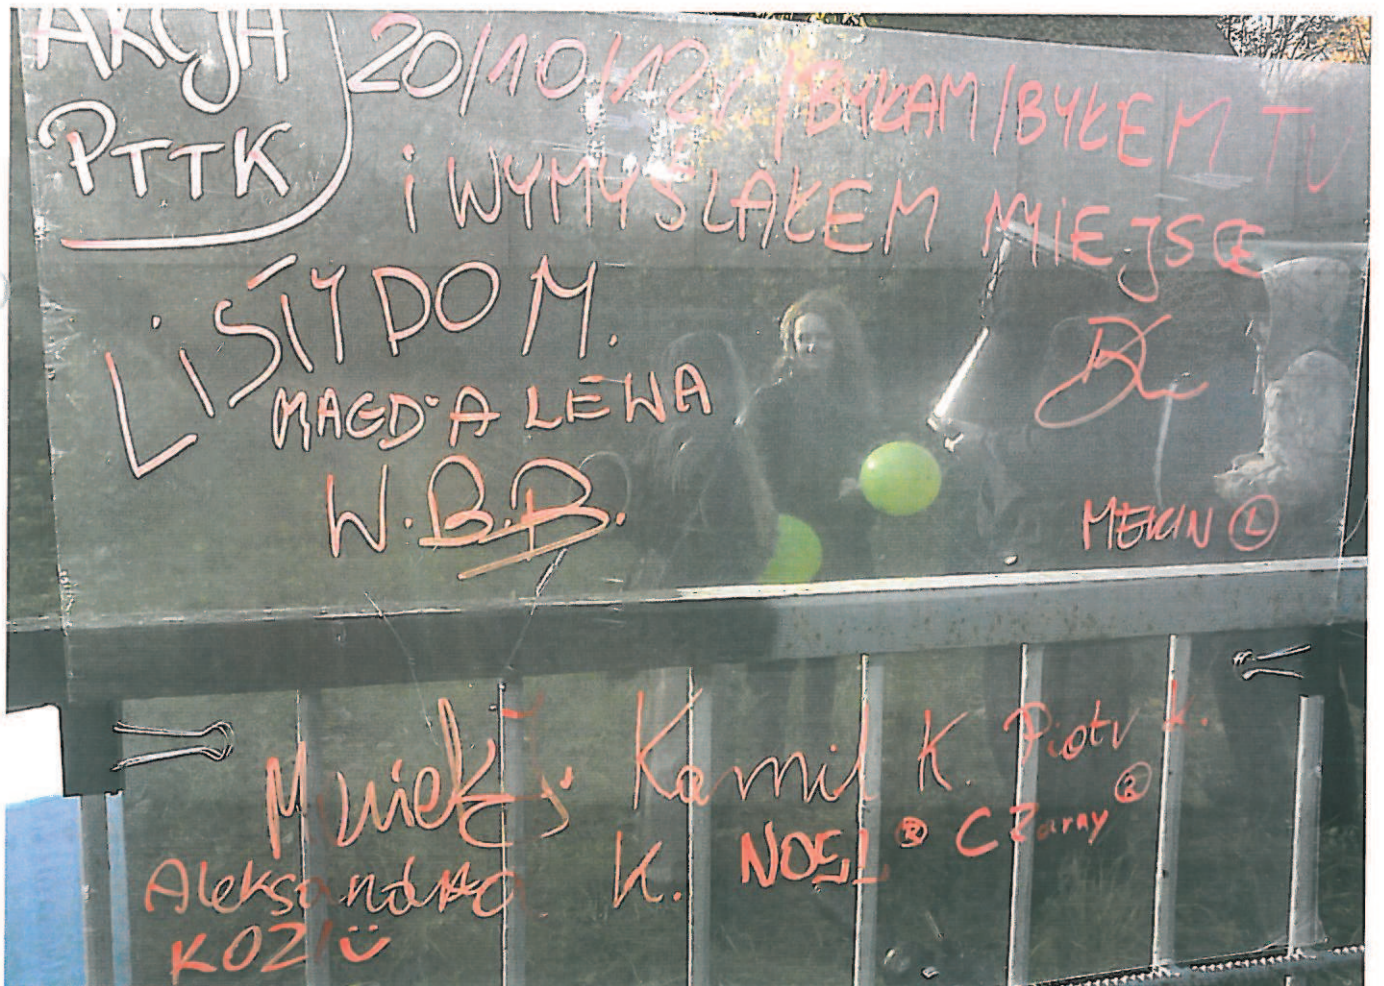 AKCJA
PTTK
20/10/12r./BYŁAM/BYŁEM TU
i WYMYŚLAŁEM MIEJSCE
LiSTY DO M.
MAGDA LEWA
W.B.B.
MERIN Ⓛ
Kamil K. Piotr K.
Aleksandra K. NOEL ® Czarny ®
KOZI